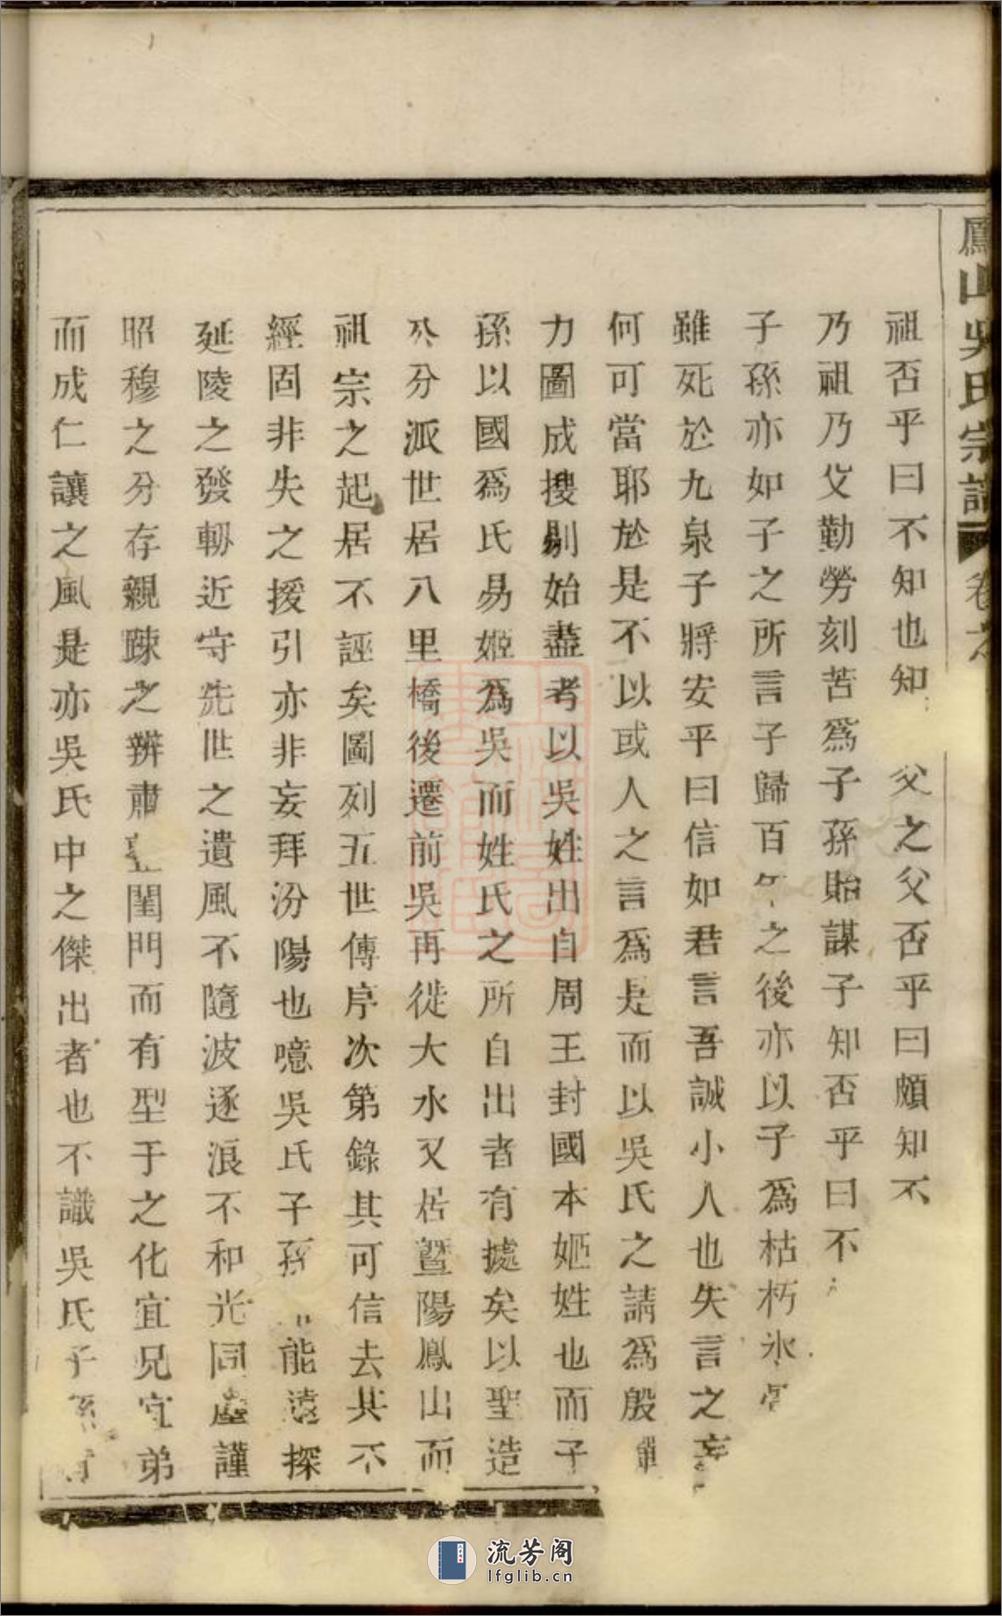 鳳山吳氏宗譜 卷之
祖否乎曰不知也知 父之父否乎曰頗知不
乃祖乃父勤勞刻苦爲子孫貽謀子知否乎曰不
子孫亦如子之所言子歸百年之後亦以子爲枯朽氷
雖死於九泉子將安乎曰信如君言吾誠小人也失言之妄
何可當耶於是不以或人之言爲是而以吳氏之請爲殷
力圖成搜剔始盡考以吳姓出自周王封國本姬姓也而子
孫以國爲氏易姬爲吳而姓氏之所自出者有據矣以聖造
公分派世居八里橋後遷前吳再徙大水又居暨陽鳳山而
祖宗之起居不誣矣圖列五世傳序次第錄其可信去其不
經固非失之援引亦非妄拜汾陽也噫吳氏子孫 能遠探
延陵之發軔近守先世之遺風不隨波逐浪不和光同塵謹
昭穆之分存親踈之辨肅 閨門而有型于之化宜兄宜弟
而成仁讓之風是亦吳氏中之傑出者也不識吳氏子孫
流芳阁
lfglib.cn